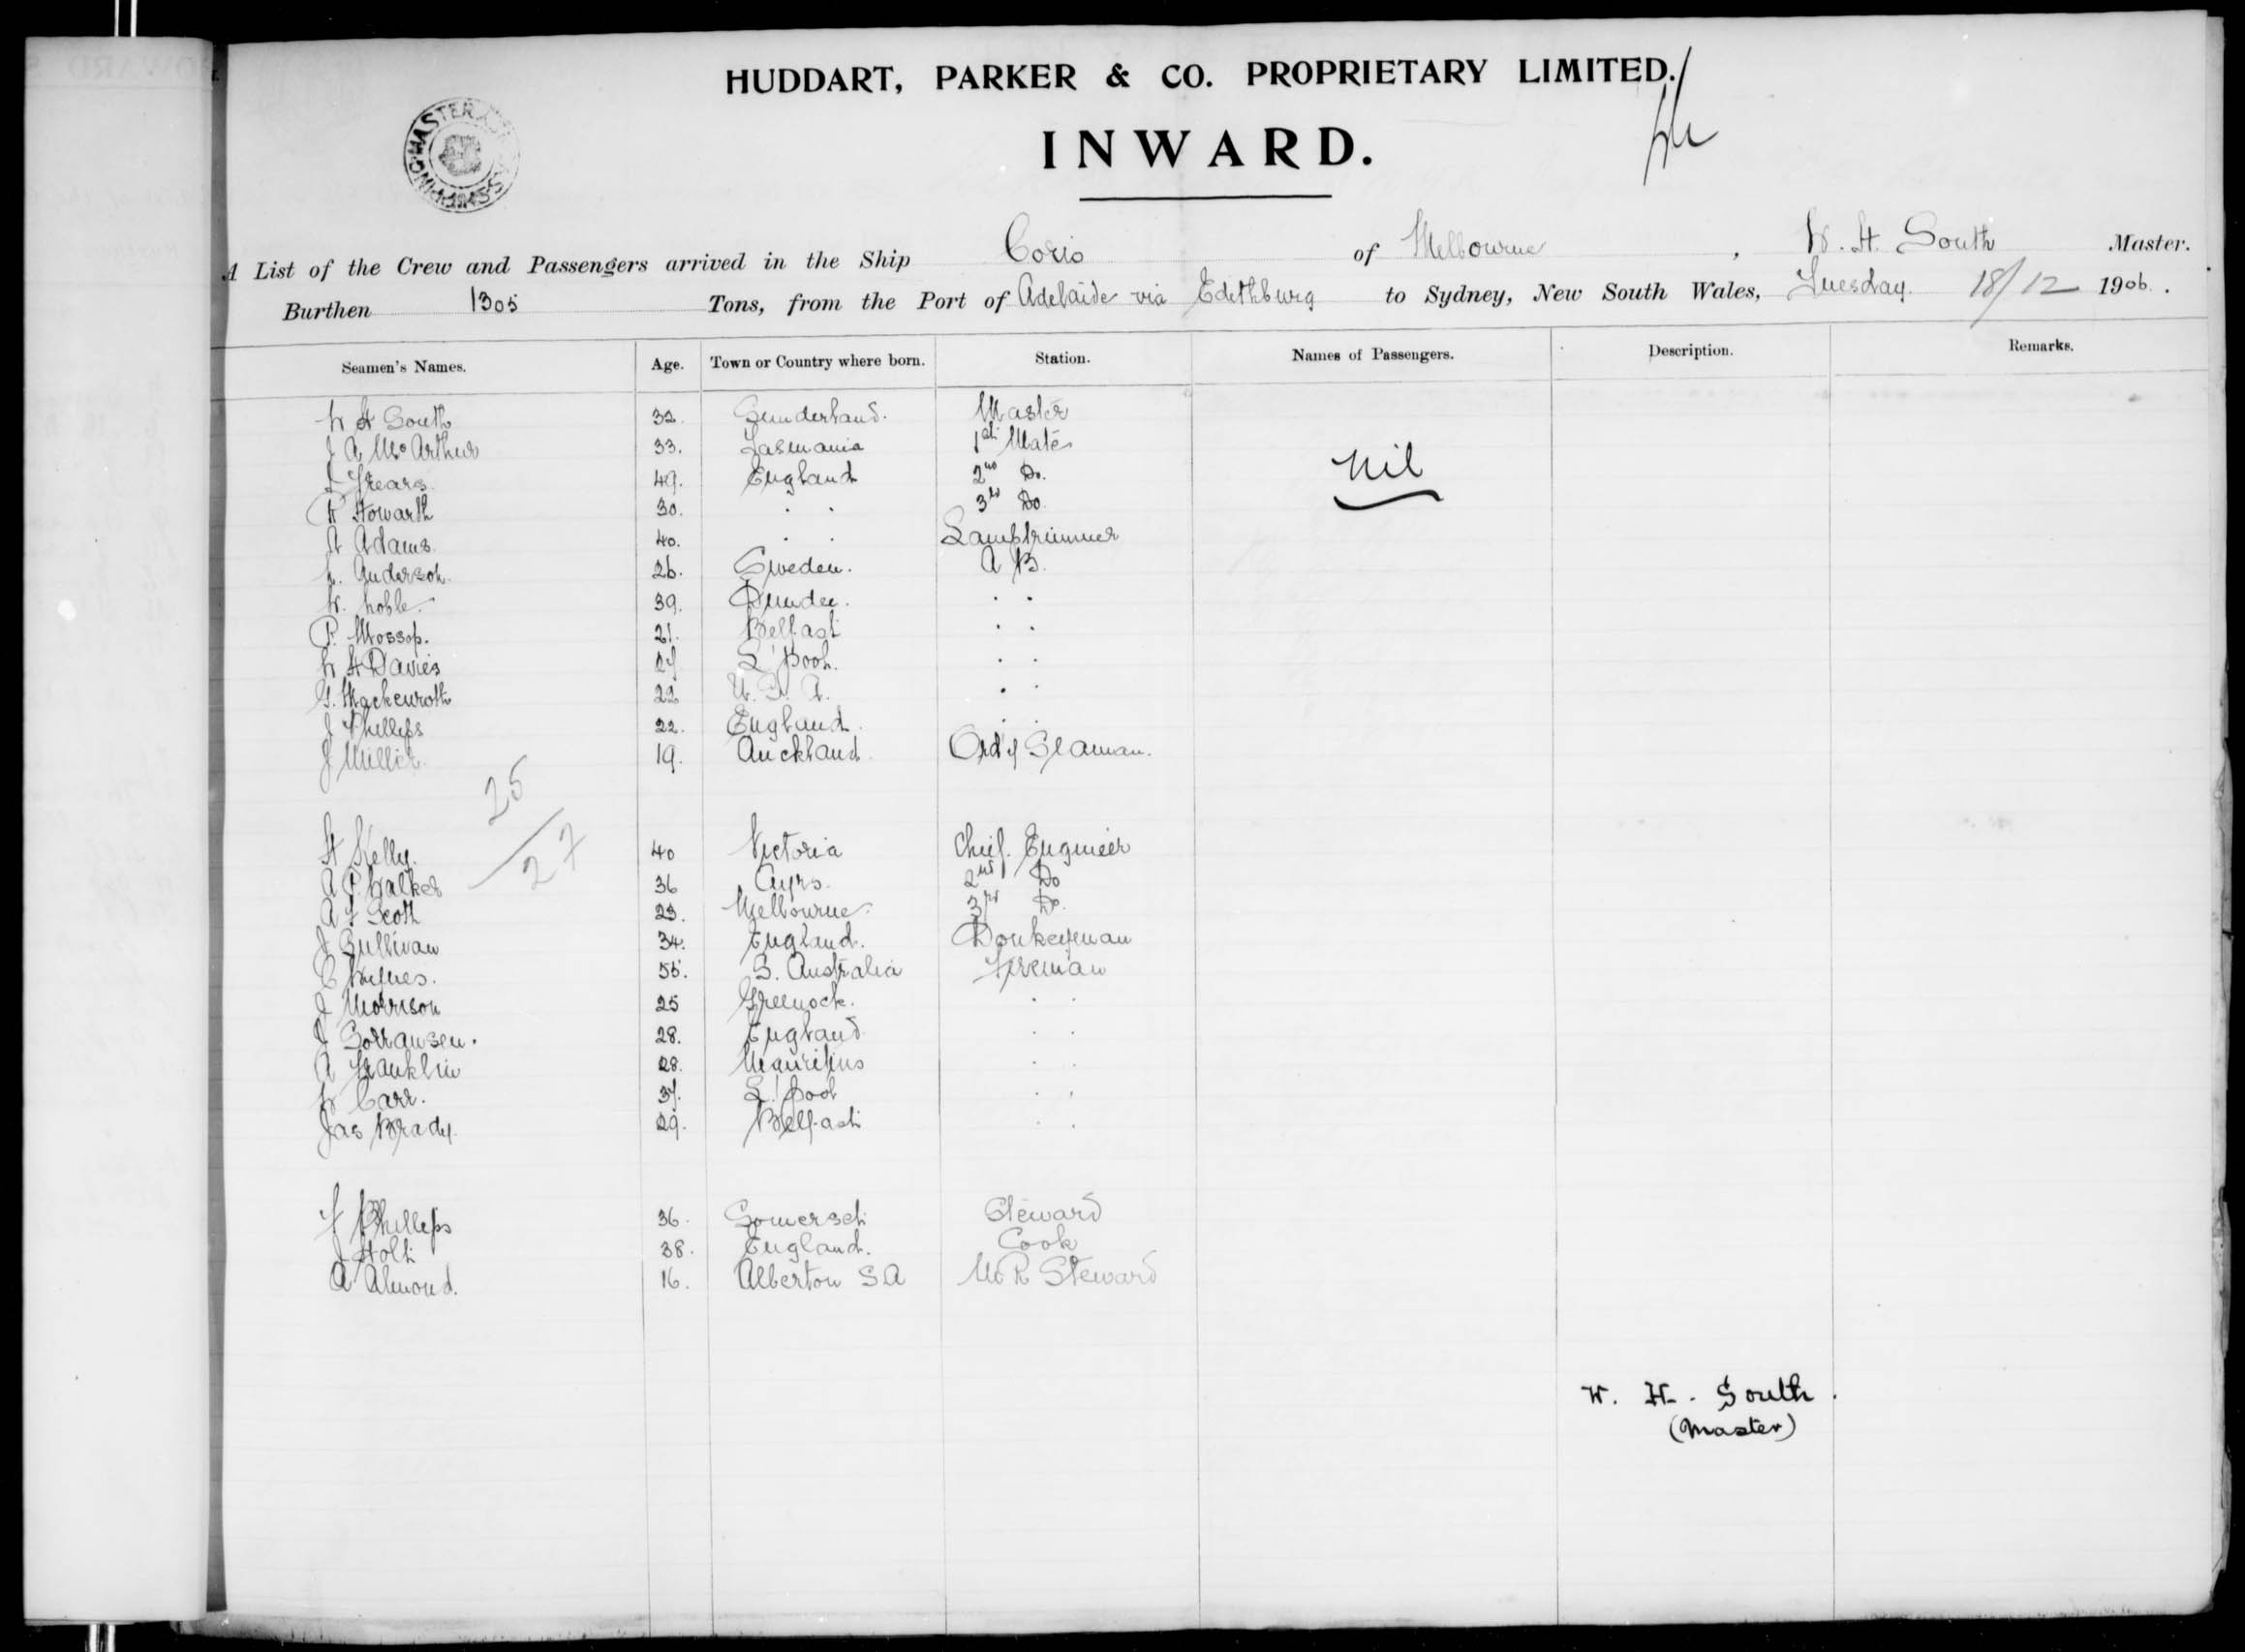 HUDDART, PARKER & CO. PROPRIETARY LIMITED.
INWARD.
A List of the Crew and Passengers arrived in the Ship Corio of Melbourne, W. H. South Master.
Burthen 1305 Tons, from the Port of Adelaide via Edithburg to Sydney, New South Wales, Tuesday 18/12 1906.
Seamen's Names. Age. Town or Country where born. Station. Names of Passengers. Description. Remarks.
W H South 32. Sunderland. Master
J A McArthur 33. Tasmania 1st Mate
Frears. 49. England 2nd Do. Nil
Howarth 30. . . 3rd Do.
A Adams. 40. . . Lamptrimmer
Anderson. 26. Sweden. A B.
W. Noble. 39. Dundee. . .
P. Mossop. 21. Belfast . .
W H Davies 27 L'Pool. . .
G. Mackenroth 22 U. S. A. . .
J Phillips 22. England . .
J Miller. 19. Auckland Ord'y Seaman.
25
27
H Kelly. 40 Victoria Chief. Engineer
A P. Walker 36 Ayrs. 2nd Do
A F Scott 23. Melbourne. 3rd Do.
J Sullivan 34. England. Donkeyman
C Hughes. 55. S. Australia Fireman
J Morrison 25 Greenock. . .
J Sorransen. 28. England . .
A Franklin 28. Mauritius . .
W Carr. 37. L'pool . .
Jas Brady. 29. Belfast . .
F Phillips 36. Somerset Steward
J Holt 38. England. Cook
A Almond. 16. Alberton S.A M R Steward
W. H. South.
(Master)